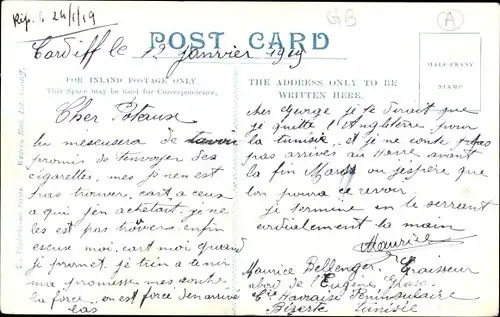 Rép. le 24/1/19
GB
A
Cardiff le 12 janvier 1919
POST CARD
FOR INLAND POSTAGE ONLY.
This Space may be used for Correspondence.
THE ADDRESS ONLY TO BE
WRITTEN HERE.
HALF-PENNY
STAMP
Cher Poteaux
tu mescusera de
promis de tenvoyer des
cigarettes, mes je nen est
pas trouver, cart a ceux
a qui j'en achetait je ne
les est pas trouvers enfin
escuse moi, cart moi quand
je promet je tien a tenir
ma promesse mes contre
la force, on est force den arrivé
las
cher George je te dirait que
je quitte l'Angleterre pour
la tunisie, et je ne conte pas
pas arrivés au Havre avant
la fin Mars ou jespère que
lon poura ce revoir.
je termine en te serrant
cordialement la main
Maurice
Maurice Bellenger, Graisseur
abord de l'Eugène Grosos
Cie Havraise Péninsulaire
Bizerte Tunisie